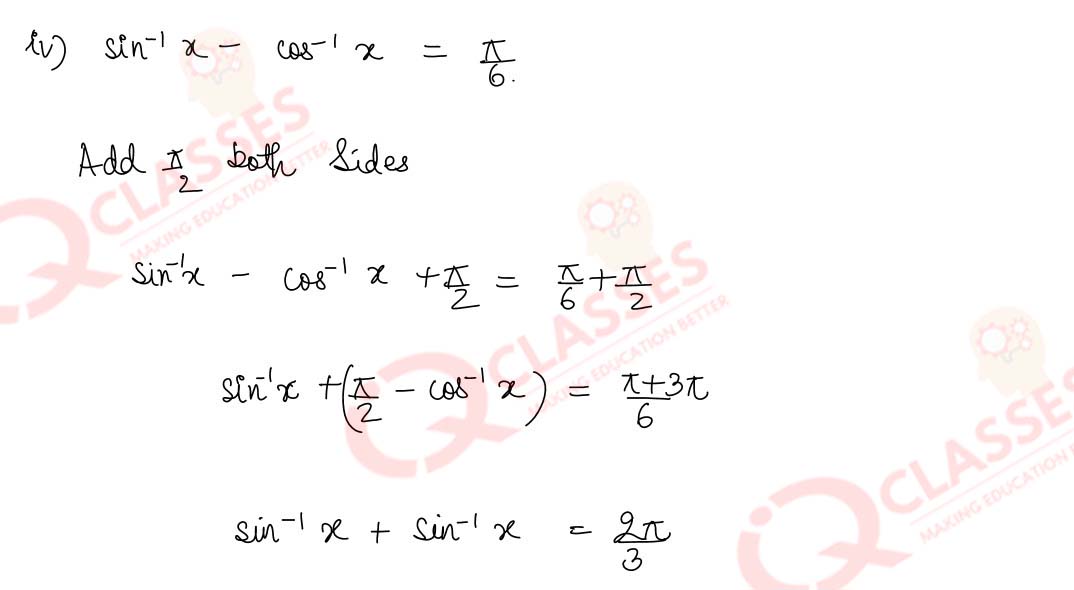 iv) sin⁻¹ x − cos⁻¹ x = π/6.
Add π/2 both Sides
sin⁻¹x − cos⁻¹ x + π/2 = π/6 + π/2
sin⁻¹x + (π/2 − cos⁻¹ x) = π+3π/6
sin⁻¹ x + sin⁻¹ x = 2π/3
CLASSES
MAKING EDUCATION BETTER
CLASSES
MAKING EDUCATION BETTER
CLASSES
MAKING EDUCATION B